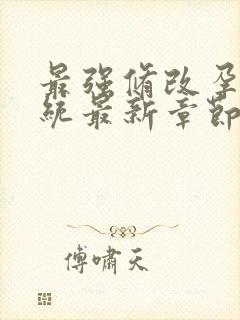 最强脩改孕
统最新章节
傅啸天